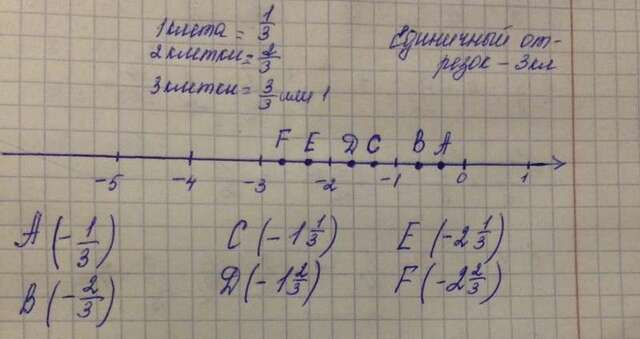 1 клета = 1/3
2 клетки = 2/3
3 клетки = 3/3 или 1
Единичный от-
резок – 3 кл
F E D C B A
-5 -4 -3 -2 -1 0 1
A (-1/3) C (-1 1/3) E (-2 1/3)
B (-2/3) D (-1 2/3) F (-2 2/3)